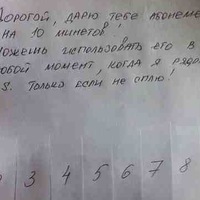 дорогой, дарю тебе абонеме
на 10 минетов
можешь использовать его в
любой момент, когда я рядом
S. только если не сплю!
3 4 5 6 7 8